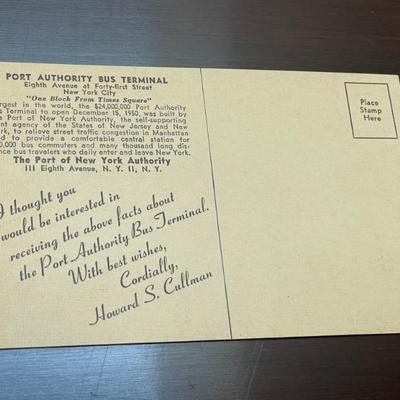 PORT AUTHORITY BUS TERMINAL
Eighth Avenue at Forty-first Street
New York City
"One Block From Times Square"
argest in the world, the $24,000,000 Port Authority
s Terminal to open December 15, 1950, was built by
e Port of New York Authority, the self-supporting
nt agency of the States of New Jersey and New
rk, to relieve street traffic congestion in Manhattan
d to provide a comfortable central station for
,000 bus commuters and many thousand long dis-
ce bus travelers who daily enter and leave New York.
The Port of New York Authority
111 Eighth Avenue, N. Y. 11, N. Y.
I thought you
would be interested in
receiving the above facts about
the Port Authority Bus Terminal.
With best wishes,
Cordially,
Howard S. Cullman
Place
Stamp
Here